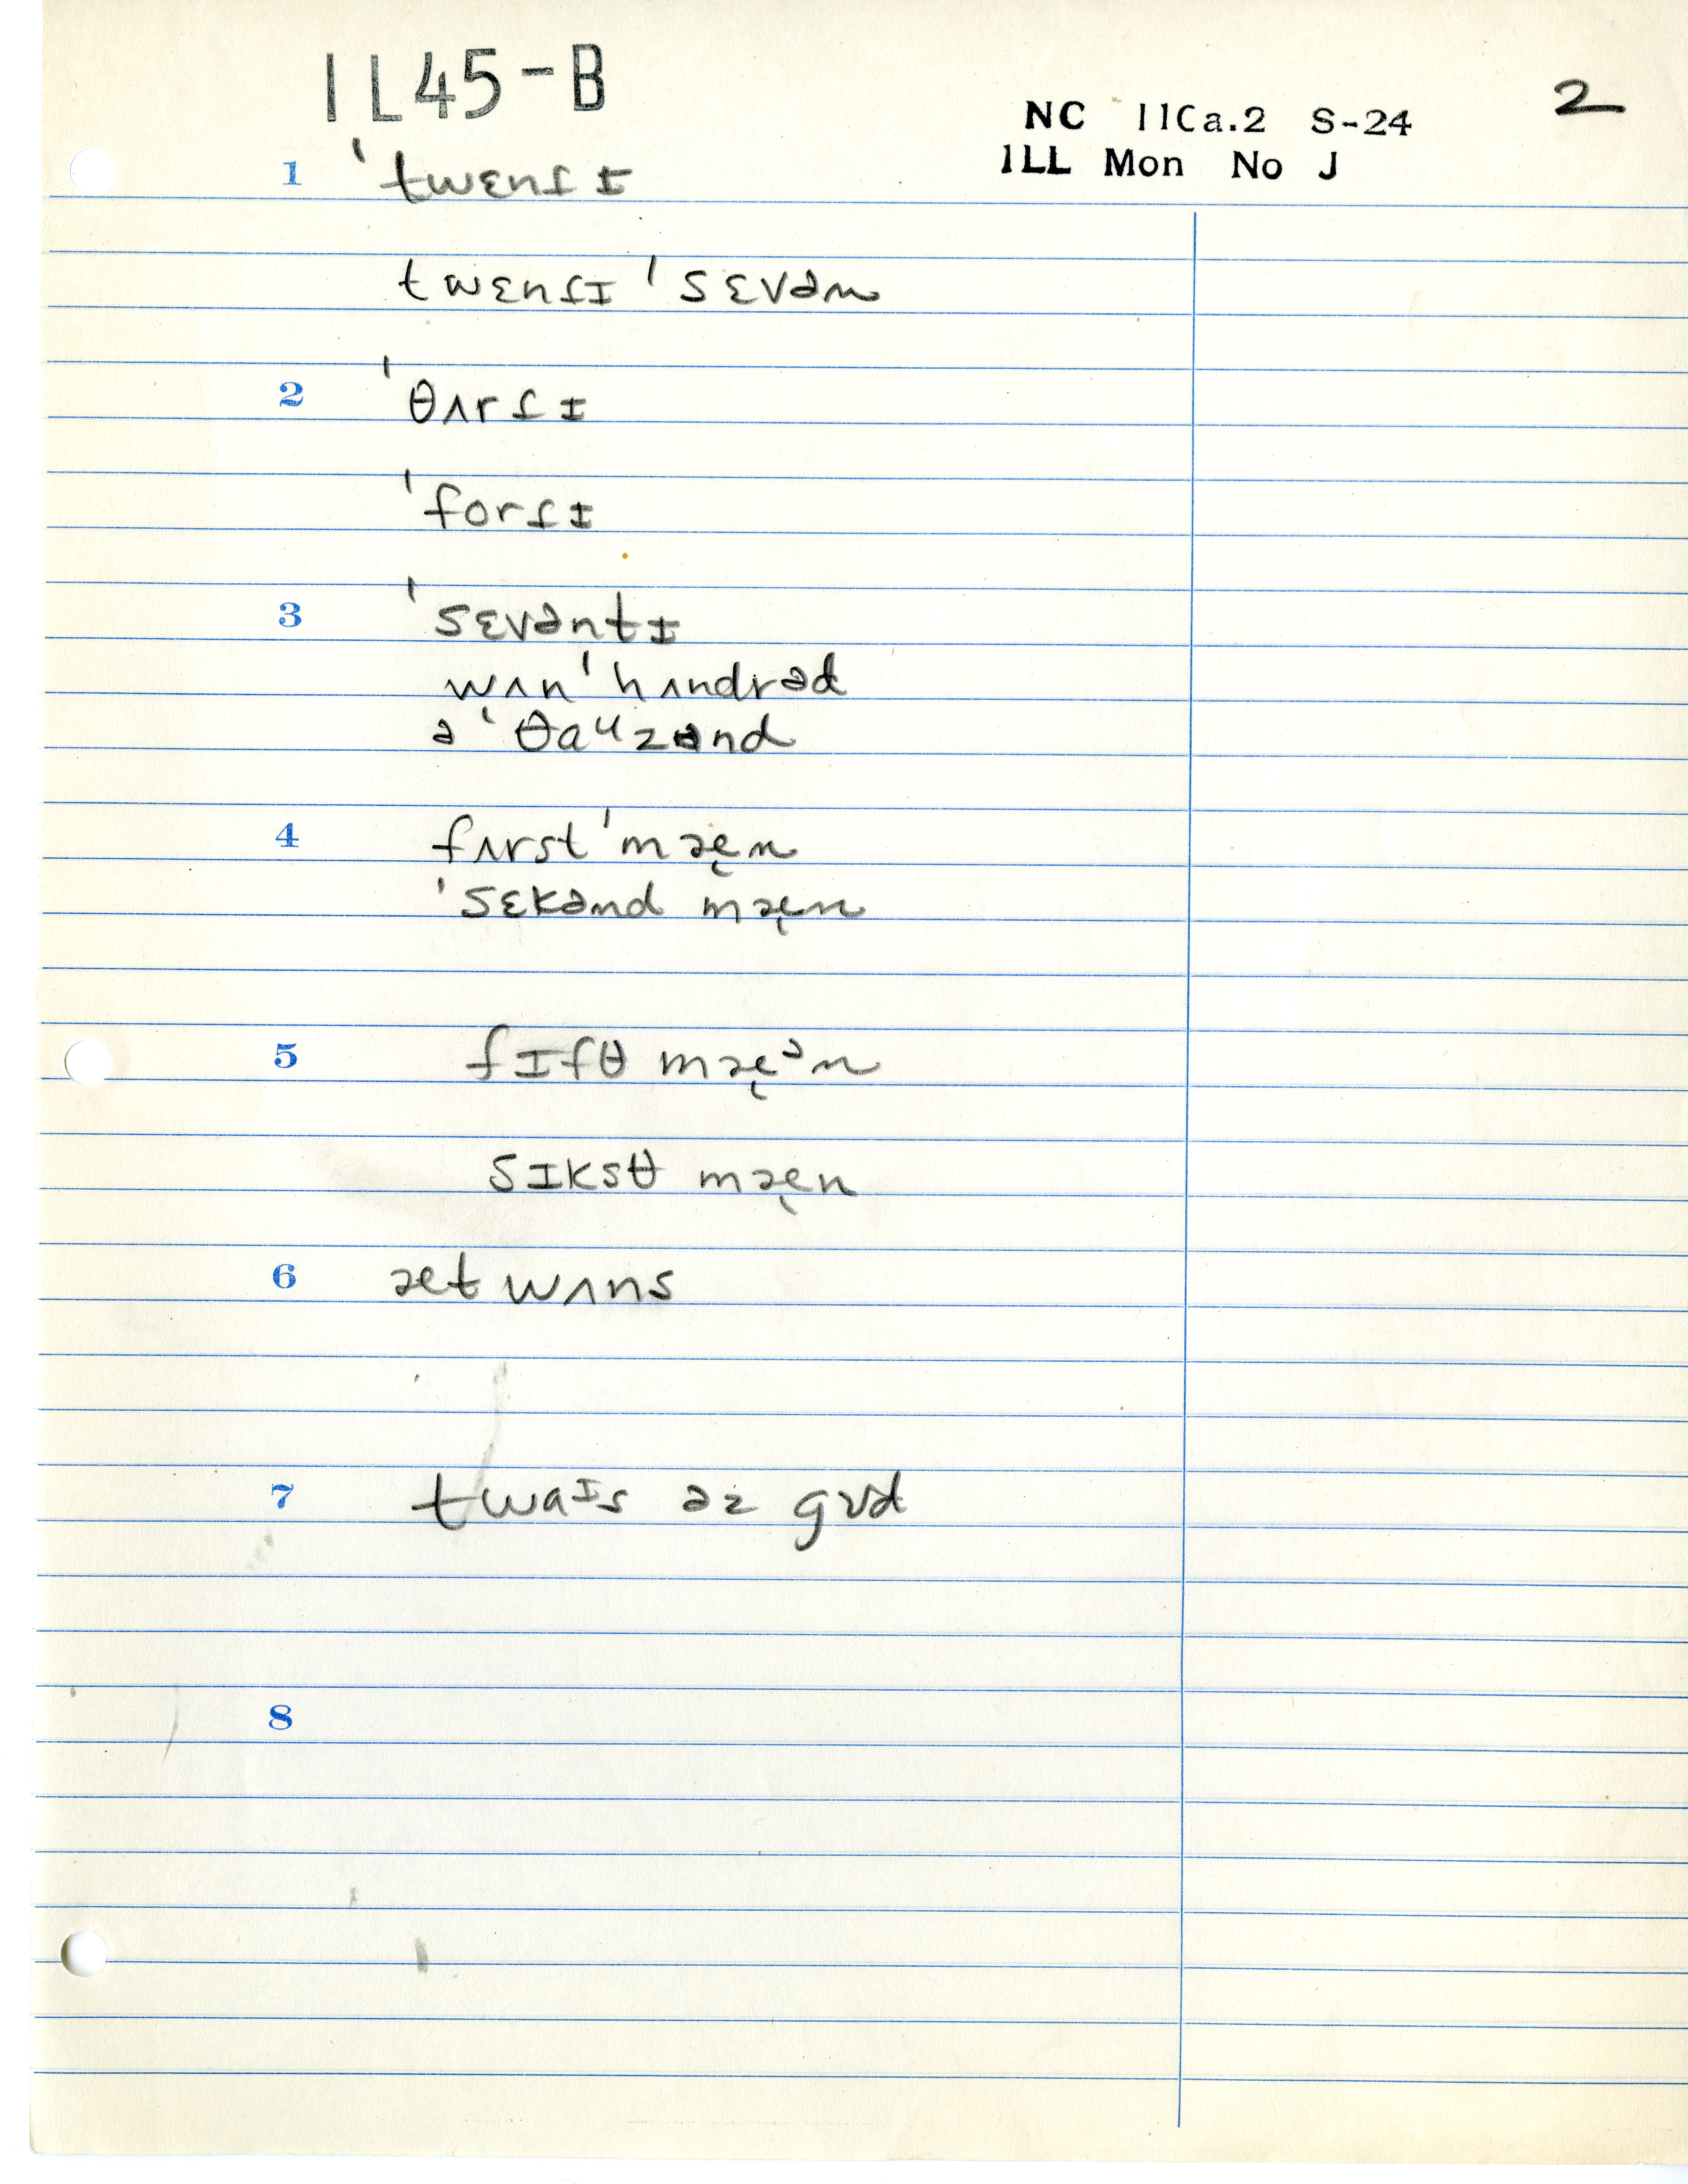 IL45-B
NC 11Ca.2 S-24
ILL Mon No J
2
1 ˈtwɛnɾɪ
twɛnɾɪ ˈsɛvən
2 ˈθʌrɾɪ
ˈforɾɪ
3 ˈsɛvəntɪ
wʌn ˈhʌndrəd
ə ˈθaᶸzənd
4 fʌrst ˈmæ̨n
ˈsɛkənd mæ̨n
5 fɪfθ mæ̨ᵊn
sɪksθ mæ̨n
6 æt wʌns
7 twaᶦs əz gʊd
8